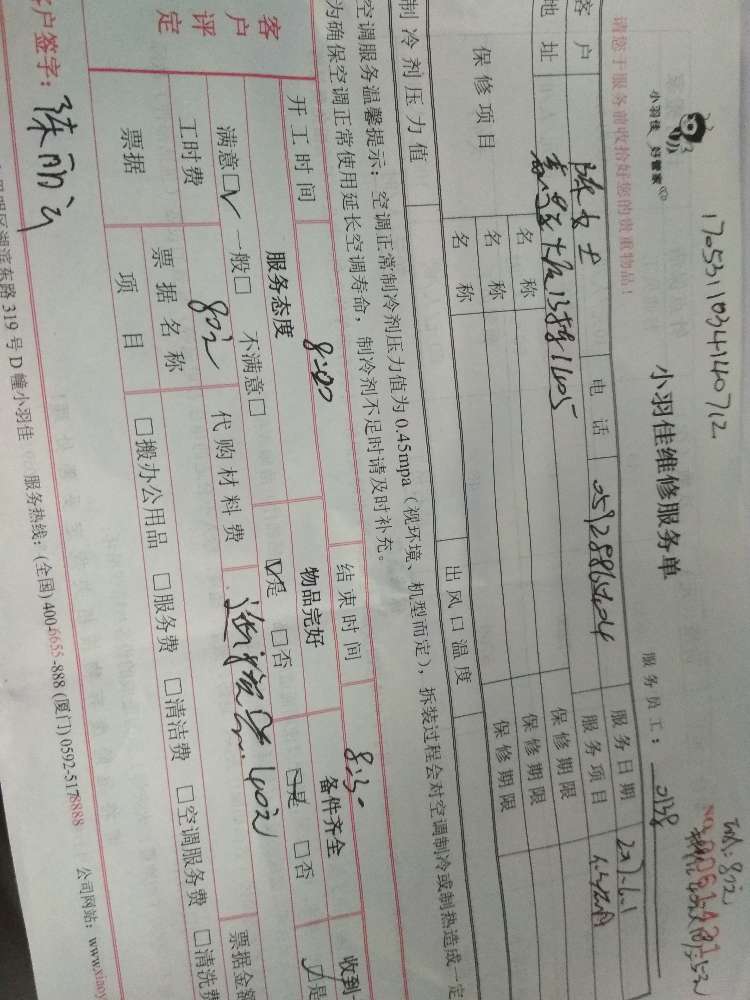 1705311034140712
小羽佳 好管家
小羽佳维修服务单
服务员工: 0138
请您于服务前收拾好您的贵重物品!
客户 陈女士 电话 服务日期
地址 服务项目
保修项目 名称 保修期限
名称 保修期限
名称 保修期限
制冷剂压力值 出风口温度
空调服务温馨提示: 空调正常制冷剂压力值为0.45mpa (视环境、机型而定), 拆装过程会对空调制冷或制热造成一定
为确保空调正常使用延长空调寿命, 制冷剂不足时请及时补充。
开工时间 8:00 结束时间 8:30
客户评定 服务态度 物品完好 备件齐全 收到
满意☑ 一般□ 不满意□ ☑是 □否 ☑是 □否 ☑是
工时费 80元 代购材料费 40元
票据 票据名称 票据金额
项目 □搬办公用品 □服务费 □清洁费 □空调服务费 □清洗费
客户签字:
湖滨东路319号D幢小羽佳 服务热线: (全国) 400-6655-888 (厦门) 0592-5178888 公司网站: www.xiaoy